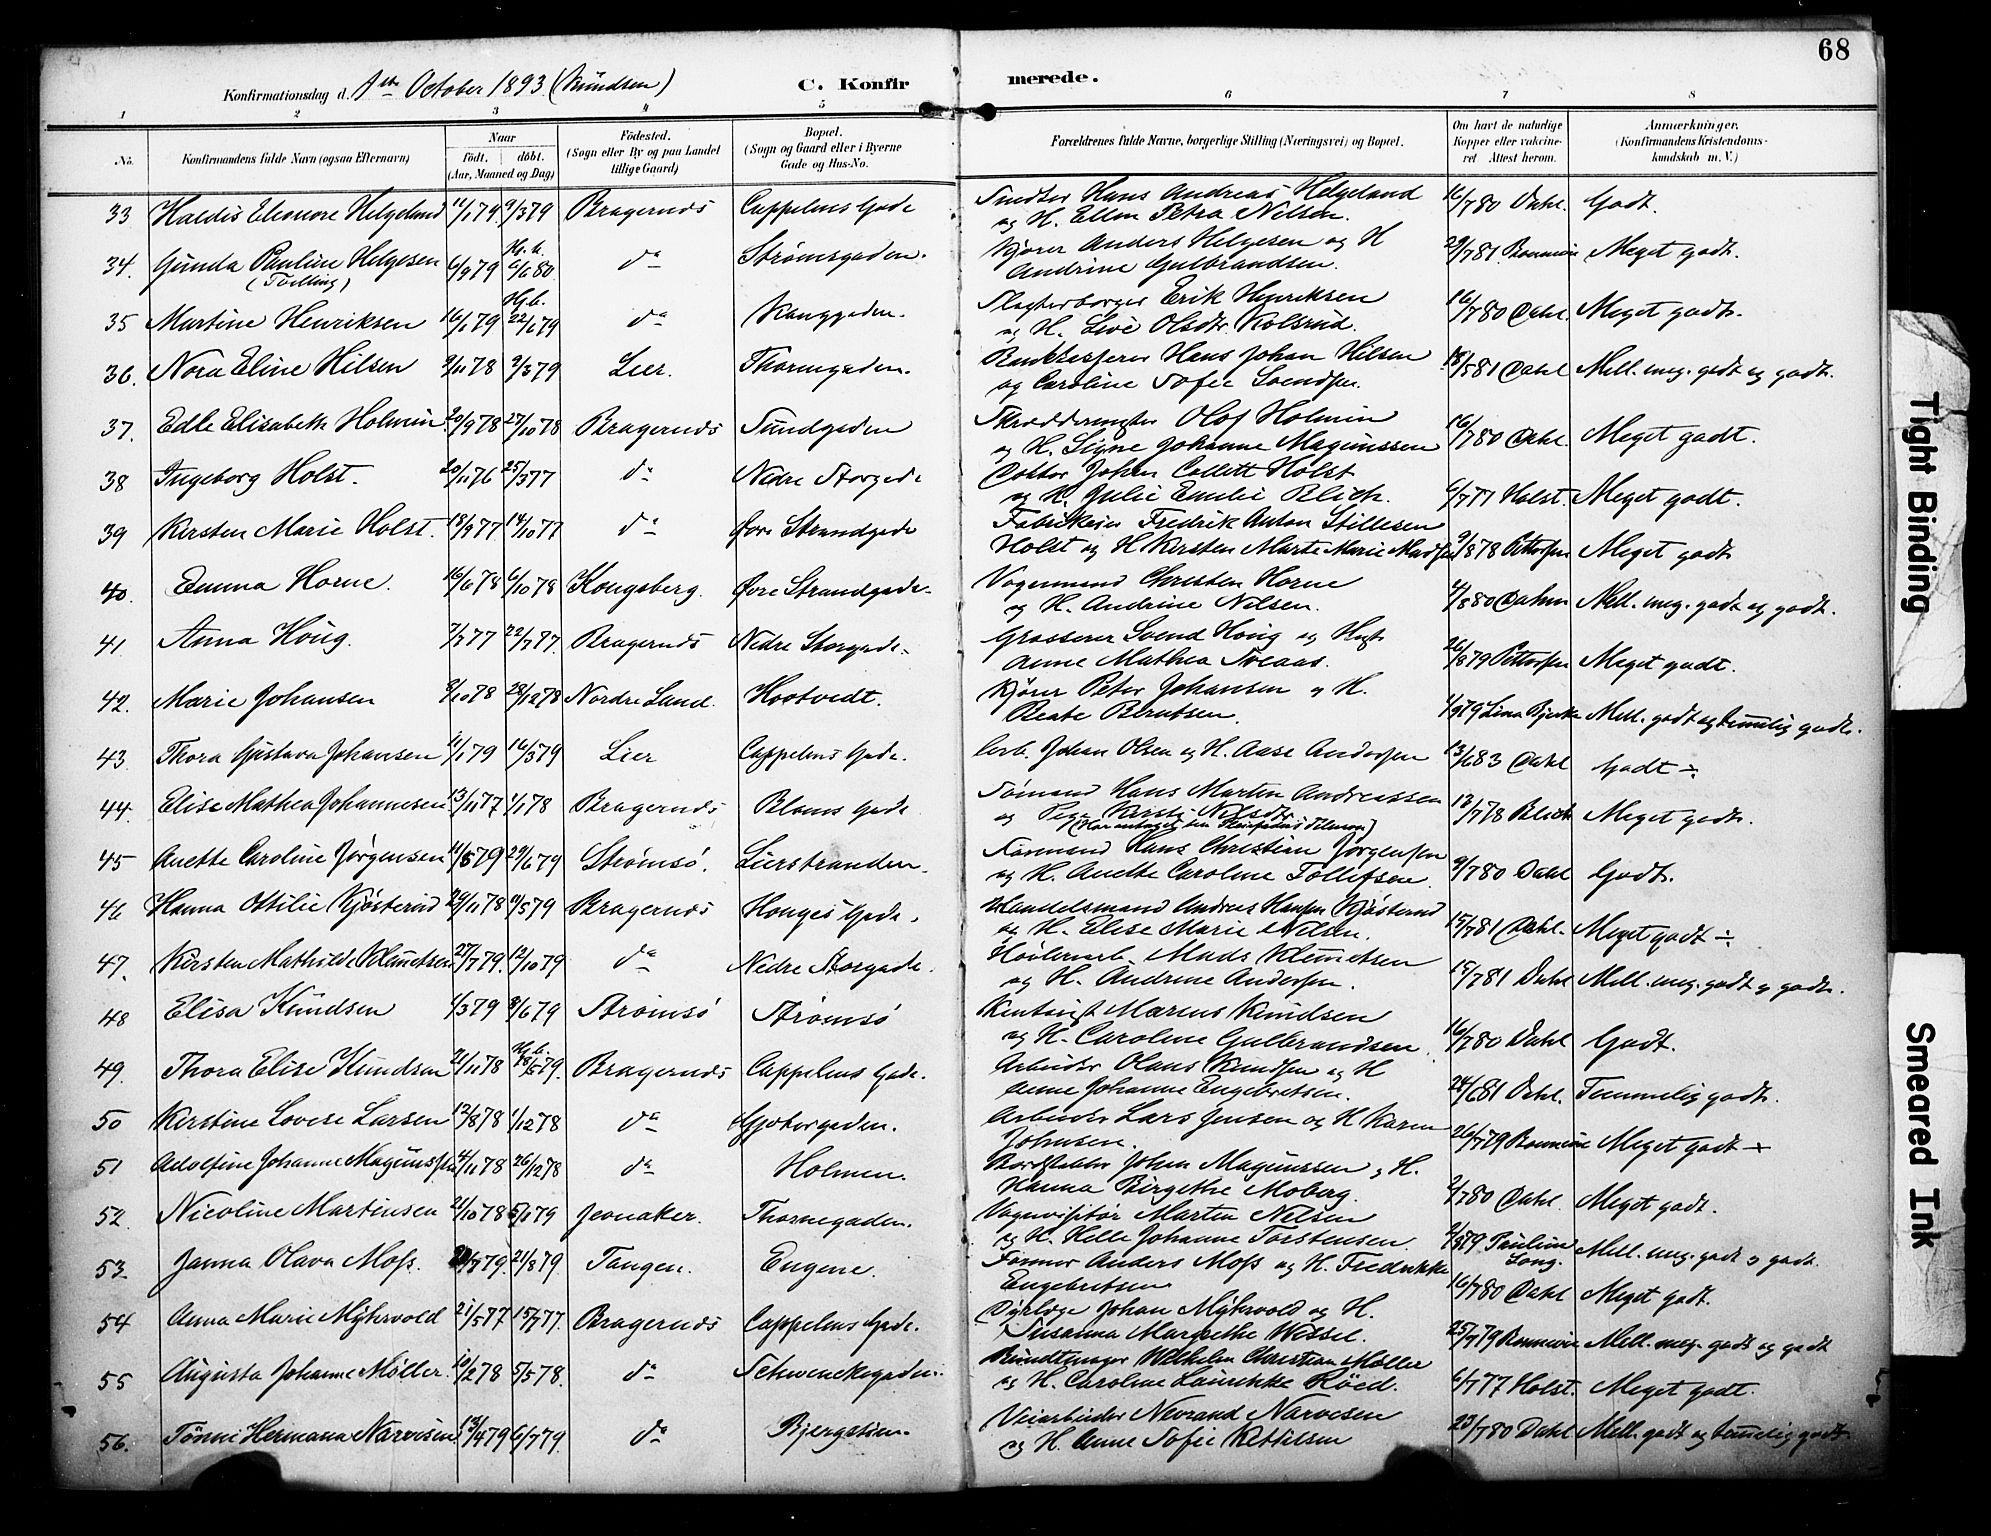 68
Konfirmationsdag d. 1ste October 1893 (Knudsen) C. Konfirmerede.
1 2 3 4 5 6 7 8
No. Konfirmandens fulde Navn (ogsaa Efternavn) Naar födt. döbt. (Aar, Maaned og Dag) Födested. (Sogn eller By og paa Landet tillige Gaard) Bopæl. (Sogn og Gaard eller i Byerne Gade og Hus-No. Forældrenes fulde Navne, borgerlige Stilling (Næringsvei) og Bopæl. Om havt de naturlige Kopper eller vakcineret Attest herom. Anmærkninger. (Konfirmandens Kristendomskundskab m. V.)
33 Haldis Eleonore Helgeland 11/1 79. 9/3 79 Bragernæs Cappelens Gade Hans Andreas Helgeland og H. Ellen Petra Nilsen. 16/7 80 Dahl. Godt.
34. Gunda Pauline Helgesen (Tvilling) 6/9 79 Hj. d. 6/6 80 do Strømsgaden. Kjører Anders Helgesen og H Andrine Gulbrandsen. 29/7 81 Meget godt.
35 Martine Henriksen 16/1 79 Hj. d. 22/1 79 do Konggaden. Slagterborger Erik Henriksen og H. Live Olsdtr. Kolsrud. 16/7 80 Dahl. Meget godt.
36. Nora Eline Hilsen 9/11 78 9/3 79 Lier. Thornegaden. Bankkasserer Hans Johan Hilsen og Caroline Sofie Svendsen. 18/5 81 Dahl Mell. meg. godt og godt.
37. Edle Elisabeth Holmin 20/9 78 27/10 78 Bragernæs Sundgaden Skræddermester Olof Holmin og H. Signe Johanne Magnussen 16/7 80 Dahl. Meget godt.
38 Ingeborg Holst. 20/11 76 25/3 77 do Nedre Storgade Doktor Johan Collett Holst og H. Julie Emilie Blich. 6/7 77 Holst. Meget godt.
39 Kirsten Marie Holst. 18/9 77 14/10 77 do Øvre Strandgade Fabrikeier Fredrik Anton Stillesen Holst og H Kirsten Marie Madsen 9/8 78 Pettersen Meget godt.
40. Emma Horne. 16/6 78 6/10 78 Kongsberg. Øvre Strandgade. Vognmand Christen Horne og H. Andrine Nilsen. 4/8 80 Dahm Mell. meg. godt og godt.
41 Anna Houg. 7/7 77 22/7 77. Bragernæs Nedre Storgade. Grosserer Svend Houg og Hust Anne Mathea Sveaas. 26/8 79 Pettersen Meget godt.
42. Marie Johansen 8/10 78 28/12 78 Nordre Land. Hovtvedt. Kjører Peter Johansen og H. Beate Berntsen. 1/9 79 Lina Bjerke Mell. godt og temmelig godt.
43. Thora Gustava Johansen 11/1 79 16/3 79 Lier Cappelens Gade. Arb. Johan Olsen og H. Aase Andersen 13/6 83 Dahl Godt ÷
44. Elise Mathea Johannesen 13/11 77 1/1 78 Bragernæs Bloms Gade Sømand Hans Martin Andreassen og Pige Kirsti Nilsdtr. 12/7 78 Blich Meget godt.
45 Anette Caroline Jørgensen 11/5 79 29/6 79 Strømsö. Lierstranden. Sømand Hans Christian Jørgensen og H. Anette Caroline Tollefsen 9/7 80 Dahl Godt.
46 Hanna Ottilie Kjösterud 29/11 78 11/5 79 Bragernæs Houges Gade. Handelsmand Andreas Hansen Kjösterud og H. Elise Marie Nilsen. 15/7 81 Dahl. Meget godt ÷
47. Kirsten Mathilde Klemetsen 27/7 79. 12/10 79 do Nedre Storgade. Høvlerarb. Mads Klemetsen og H. Andrine Andersen. 15/7 81 Dahl Mell. meg. godt og godt.
48 Elisa Knudsen 1/3 79 8/6 79 Strömsö Strömsö Kontorist Marcus Knudsen og H. Caroline Gulbrandsen. 16/7 80 Dahl Godt.
49. Thora Elise Knudsen 21/11 78 Hj. d. 18/5 79. Bragernæs Cappelens Gade. Arbeider Olaus Knudsen og H Anne Johanne Engebretsen. 24/6 81 Dahl. Temmelig godt.
50 Kirstine Lovise Larsen 12/8 78 1/12 78 do Gjetergaden. Arbeider Lars Jensen og H Karen Johnsen. 26/7 79 Meget godt ÷
51 Adolfine Johanne Magnussen 4/11 78 26/12 78 do Holmen. Bordstabler Johan Magnussen og H. Hanna Birgethe Moberg. 2/7 80 Dahl. Meget godt.
52. Nicoline Martinsen 21/10 78 5/1 79 Jevnaker. Thornegaden. Vognvisitør Martin Nelsen og H. Helle Johanne Torstensen. 2/9 79 Pauline Long. Mell. meg. godt og godt.
53 Janna Olava Moss. 20/7 79. 21/8 79 Tangen. Engene. Former Anders Moss og H. Fredrikke Engebritsen 16/7 80 Dahl Meget godt.
54 Anna Marie Myhrvold 21/5 77 15/7 77. Bragernæs Cappelens Gade. Dyrlæge Johan Myhrvold og H. Susanna Margrethe Wessel. 25/7 79 Mell. meg. godt og godt
55 Augusta Johanne Möller. 10/2 78 5/5 78. do Schwenckegaden. Brandtager Wilhelm Christian Møller og H. Caroline Laurikke Röed. 6/7 77 Holst. Meget godt.
56. Tönni Hermana Narvesen. 13/4 79 6/7 79. do Bjergstien. Veiarbeider Nevrand Narvesen og H. Anne Sofie Kettilsen 23/7 80 Dahl Mell. godt og temmelig godt.
Tight Binding
Smeared Ink